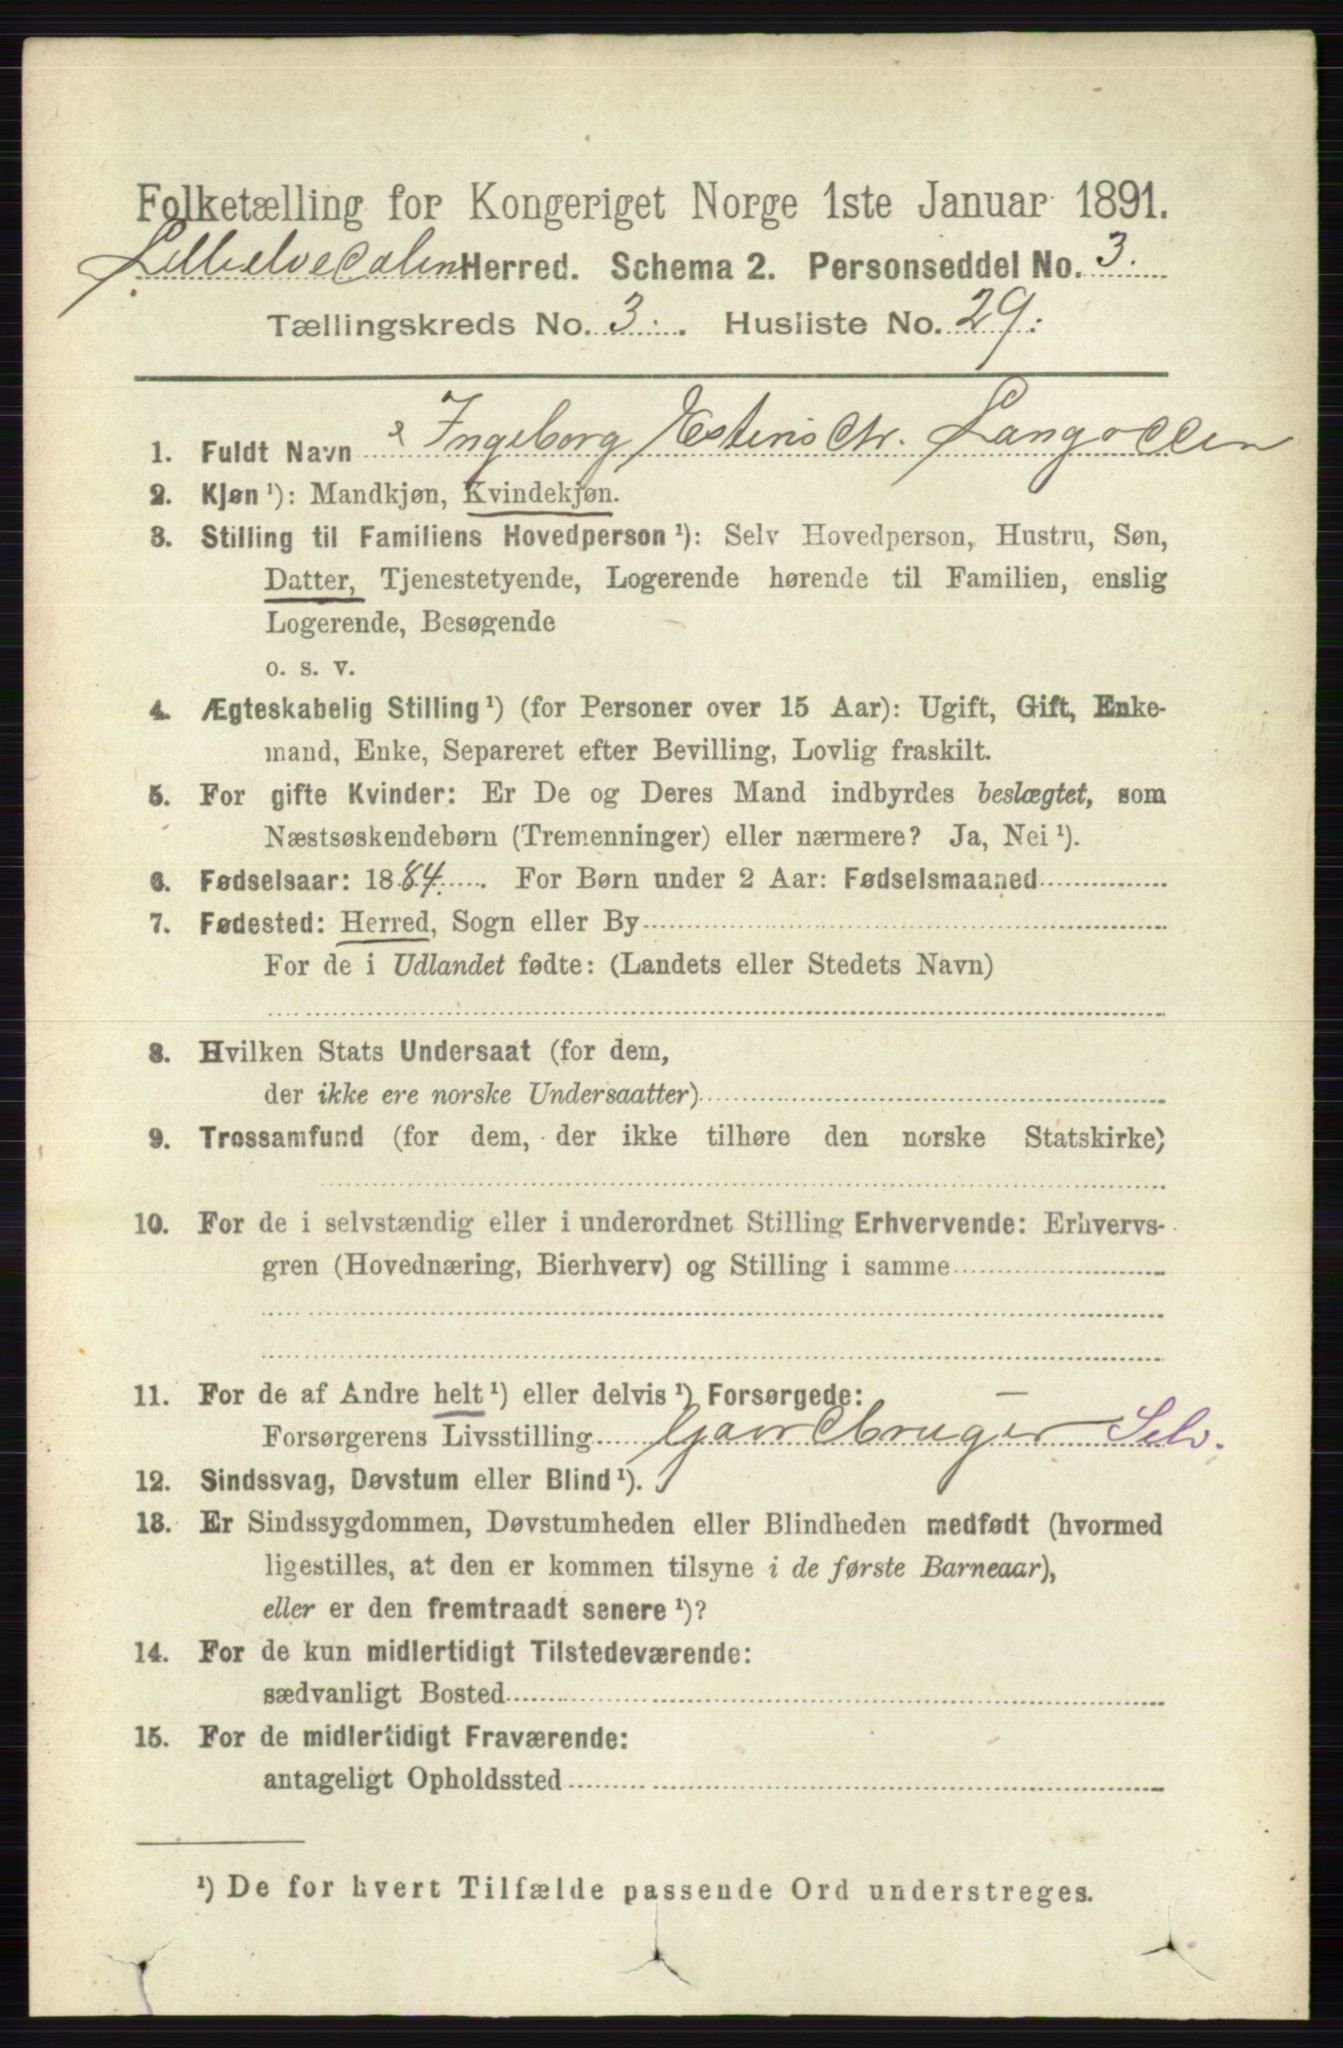 Folketælling for Kongeriget Norge 1ste Januar 1891.
Lilleelvedalen Herred. Schema 2. Personseddel No. 3.
Tællingskreds No. 3. Husliste No. 29.
1. Fuldt Navn Ingeborg Estensdtr. Langodden
2. Kjøn ¹): Mandkjøn, Kvindekjøn.
3. Stilling til Familiens Hovedperson ¹): Selv Hovedperson, Hustru, Søn,
Datter, Tjenestetyende, Logerende hørende til Familien, enslig
Logerende, Besøgende
o. s. v.
4. Ægteskabelig Stilling ¹) (for Personer over 15 Aar): Ugift, Gift, Enke-
mand, Enke, Separeret efter Bevilling, Lovlig fraskilt.
5. For gifte Kvinder: Er De og Deres Mand indbyrdes beslægtet, som
Næstsøskendebørn (Tremenninger) eller nærmere? Ja, Nei ¹).
6. Fødselsaar: 1884. For Børn under 2 Aar: Fødselsmaaned
7. Fødested: Herred, Sogn eller By
For de i Udlandet fødte: (Landets eller Stedets Navn)
8. Hvilken Stats Undersaat (for dem,
der ikke ere norske Undersaatter)
9. Trossamfund (for dem, der ikke tilhøre den norske Statskirke)
10. For de i selvstændig eller i underordnet Stilling Erhvervende: Erhvervs-
gren (Hovednæring, Bierhverv) og Stilling i samme
11. For de af Andre helt ¹) eller delvis ¹) Forsørgede:
Forsørgerens Livsstilling Gaardbruger — Selv.
12. Sindssvag, Døvstum eller Blind ¹).
13. Er Sindssygdommen, Døvstumheden eller Blindheden medfødt (hvormed
ligestilles, at den er kommen tilsyne i de første Barneaar),
eller er den fremtraadt senere ¹)?
14. For de kun midlertidigt Tilstedeværende:
sædvanligt Bosted
15. For de midlertidigt Fraværende:
antageligt Opholdssted
¹) De for hvert Tilfælde passende Ord understreges.